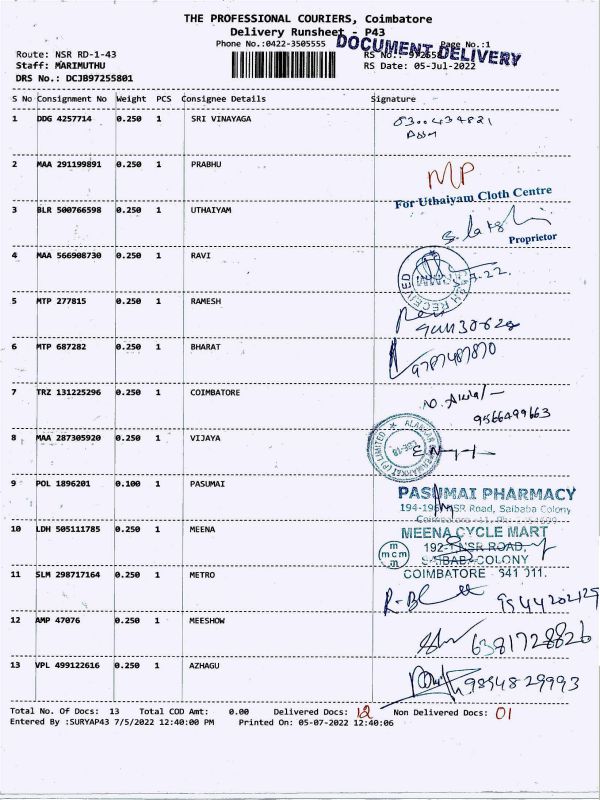 THE PROFESSIONAL COURIERS, Coimbatore
Delivery Runsheet - P43
Phone No.:0422-3505555 Page No.:1
DOCUMENT DELIVERY
Route: NSR RD-1-43 RS No.:
Staff: MARIMUTHU RS Date: 05-Jul-2022
DRS No.: DCJB97255801
S No Consignment No Weight PCS Consignee Details Signature
1 DDG 4257714 0.250 1 SRI VINAYAGA
2 MAA 291199891 0.250 1 PRABHU MP
For Uthaiyam Cloth Centre
3 BLR 500766598 0.250 1 UTHAIYAM
Proprietor
4 MAA 566908730 0.250 1 RAVI
RECEIVED
5 MTP 277815 0.250 1 RAMESH
6 MTP 687282 0.250 1 BHARAT
9787487870
7 TRZ 131225296 0.250 1 COIMBATORE
9566499663
8 MAA 287305920 0.250 1 VIJAYA
9 POL 1896201 0.100 1 PASUMAI
PASUMAI PHARMACY
194-196 NSR Road, Saibaba Colony
10 LDH 505111785 0.250 1 MEENA
MEENA CYCLE MART
mcm
192- NSR ROAD,
SAIBABA COLONY
COIMBATORE - 641 011.
11 SLM 298717164 0.250 1 METRO
9544202129
12 AMP 47076 0.250 1 MEESHOW
6381728826
13 VPL 499122616 0.250 1 AZHAGU
9894829993
Total No. Of Docs: 13 Total COD Amt: 0.00 Delivered Docs: 12 Non Delivered Docs: 01
Entered By :SURYAP43 7/5/2022 12:40:00 PM Printed On: 05-07-2022 12:40:06